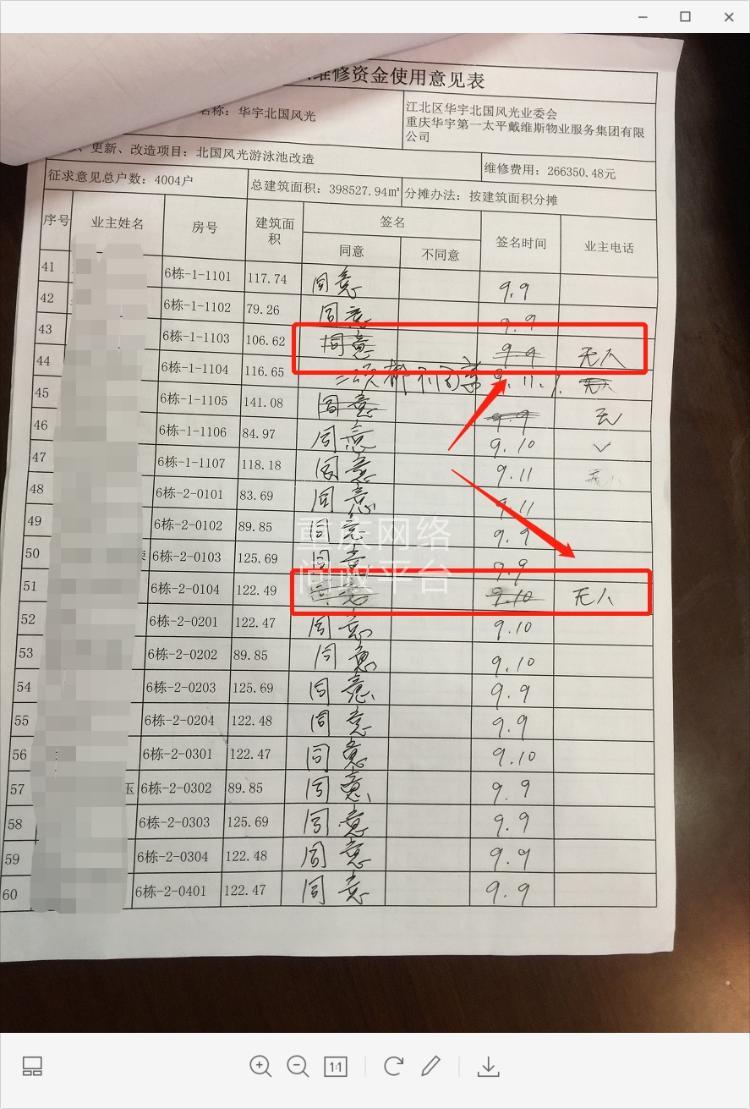 维修资金使用意见表
名称：华宇北国风光
江北区华宇北国风光业委会
重庆华宇第一太平戴维斯物业服务集团有限公司
、更新、改造项目：北国风光游泳池改造
维修费用：266350.48元
征求意见总户数：4004户
总建筑面积：398527.94㎡
分摊办法：按建筑面积分摊
序号 业主姓名 房号 建筑面积 签名 签名时间 业主电话
同意 不同意
41 6栋-1-1101 117.74 同意 9.9
42 6栋-1-1102 79.26 同意 9.9
43 6栋-1-1103 106.62 同意 9.9 无人
44 6栋-1-1104 116.65 二次都不同意 9.11.
45 6栋-1-1105 141.08 同意 9.9 无
46 6栋-1-1106 84.97 同意 9.10
47 6栋-1-1107 118.18 同意 9.11
48 6栋-2-0101 83.69 同意 9.11
49 6栋-2-0102 89.85 同意 9.9
50 6栋-2-0103 125.69 同意 9.9
51 6栋-2-0104 122.49 同意 9.10 无人
52 6栋-2-0201 122.47 同意 9.10
53 6栋-2-0202 89.85 同意 9.10
54 6栋-2-0203 125.69 同意 9.9
55 6栋-2-0204 122.48 同意 9.9
56 6栋-2-0301 122.47 同意 9.10
57 6栋-2-0302 89.85 同意 9.9
58 6栋-2-0303 125.69 同意 9.9
59 6栋-2-0304 122.48 同意 9.9
60 6栋-2-0401 122.47 同意 9.9
重庆网络
问政平台